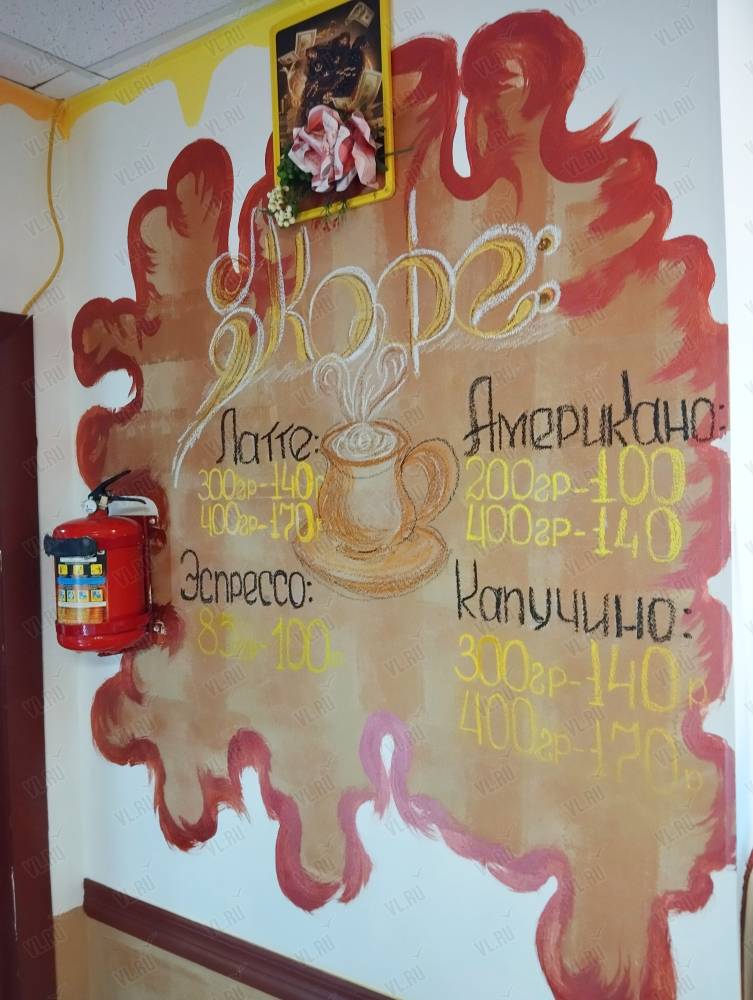 Кофе:
Латте:
300гр-140р
400гр-170р
Эспрессо:
100
Американо:
200гр-100
400гр-140
Капучино:
300гр-140р
400гр-170р
VL.RU